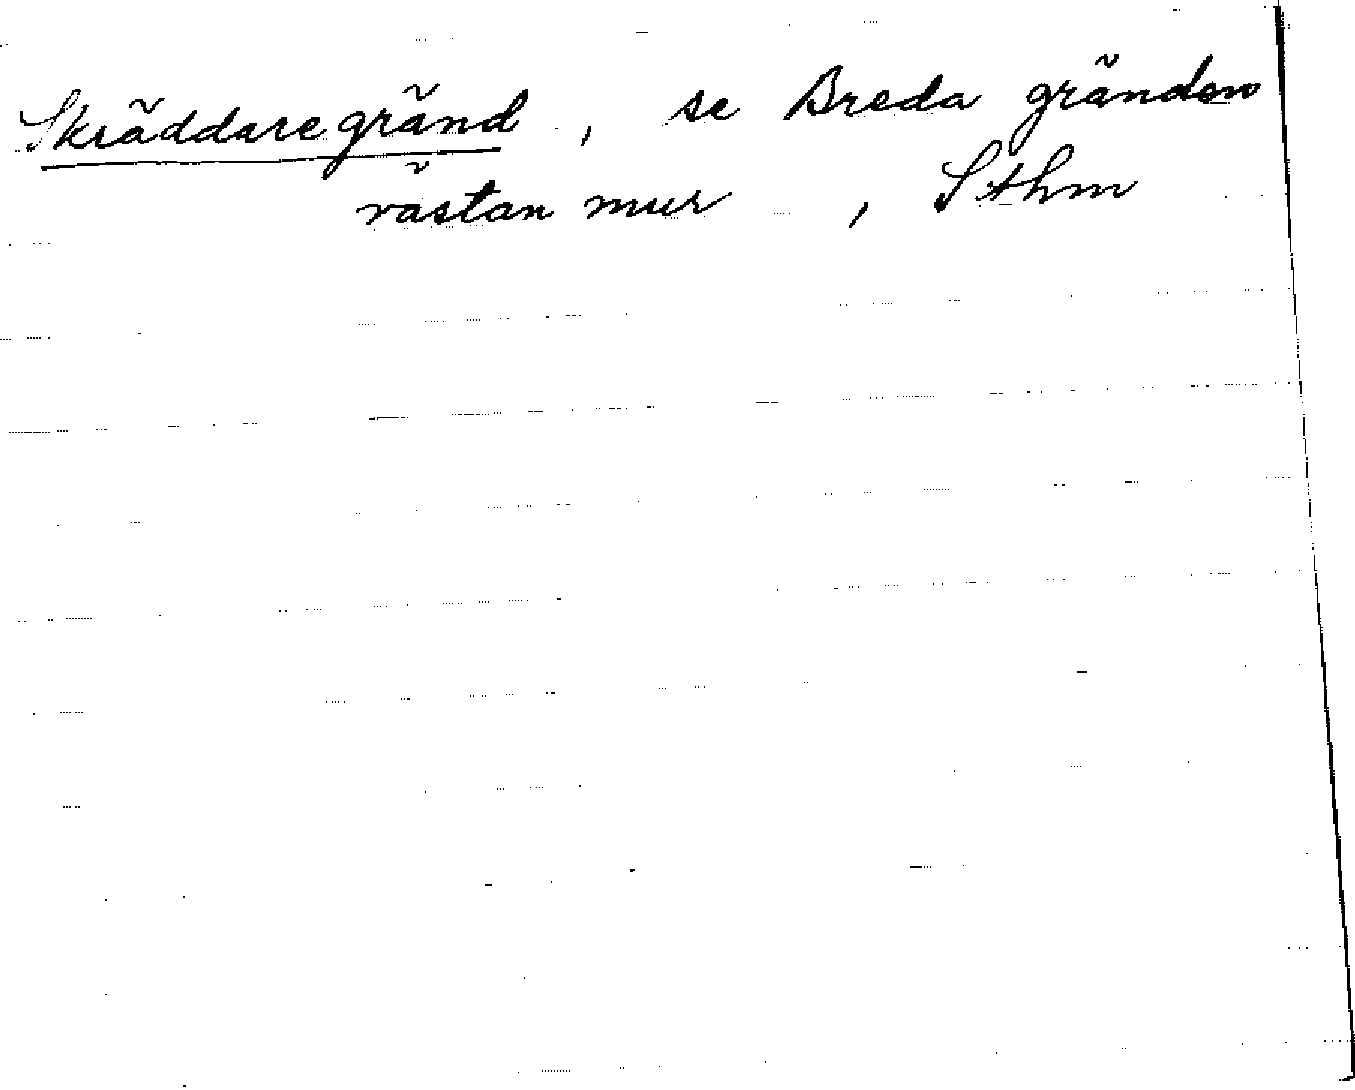 Skräddaregränd, se Breda gränden
västan mur, Sthm